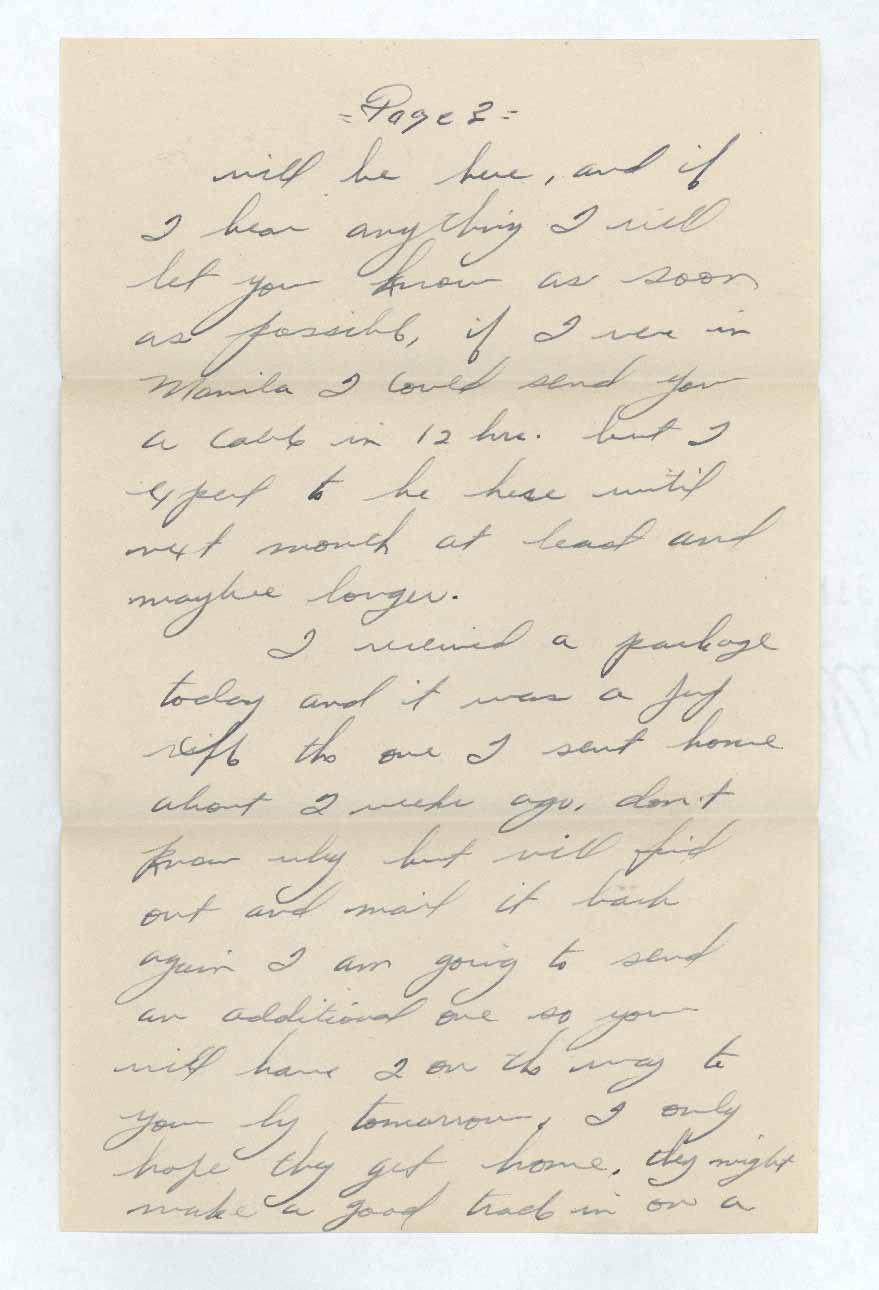 = Page 2 =
will be here, and if
I hear anything I will
let you know as soon
as possible, if I were in
Manila I could send you
a cable in 12 hrs. but I
expect to be here until
next month at least and
maybee longer.
I received a package
today and it was a Jap
rifle the one I sent home
about 2 weeks ago, don't
know why but will find
out and mail it back
again I am going to send
an additional one so you
will have 2 on the way to
you by tomorrow, I only
hope they get home. they might
make a good trade in on a